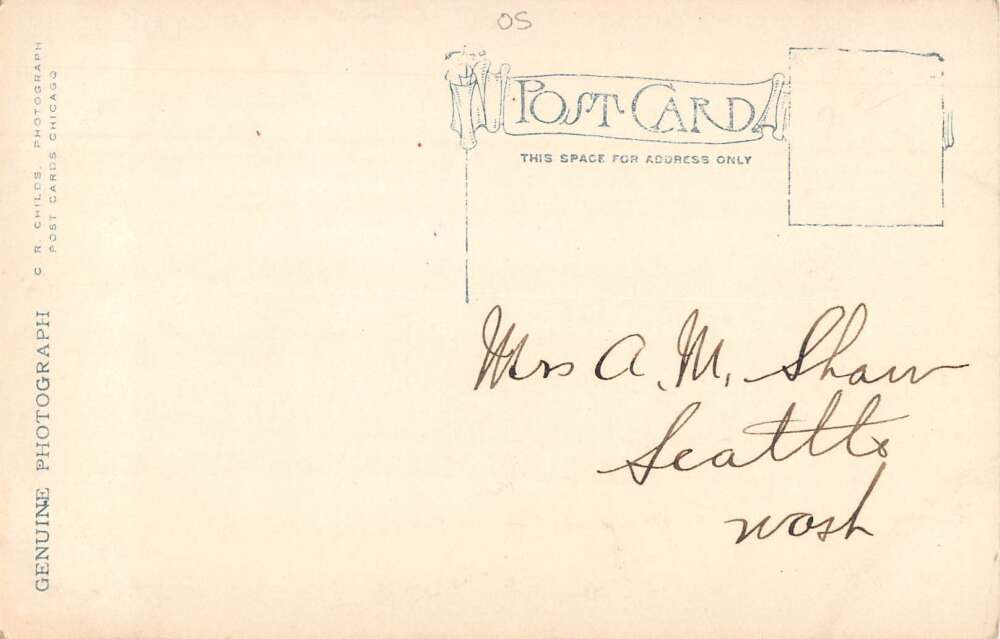 OS
POST CARD
THIS SPACE FOR ADDRESS ONLY
Mrs A. M. Shaw
Seattle
Wash
GENUINE PHOTOGRAPH
C. R. CHILDS. PHOTOGRAPH
POST CARDS CHICAGO